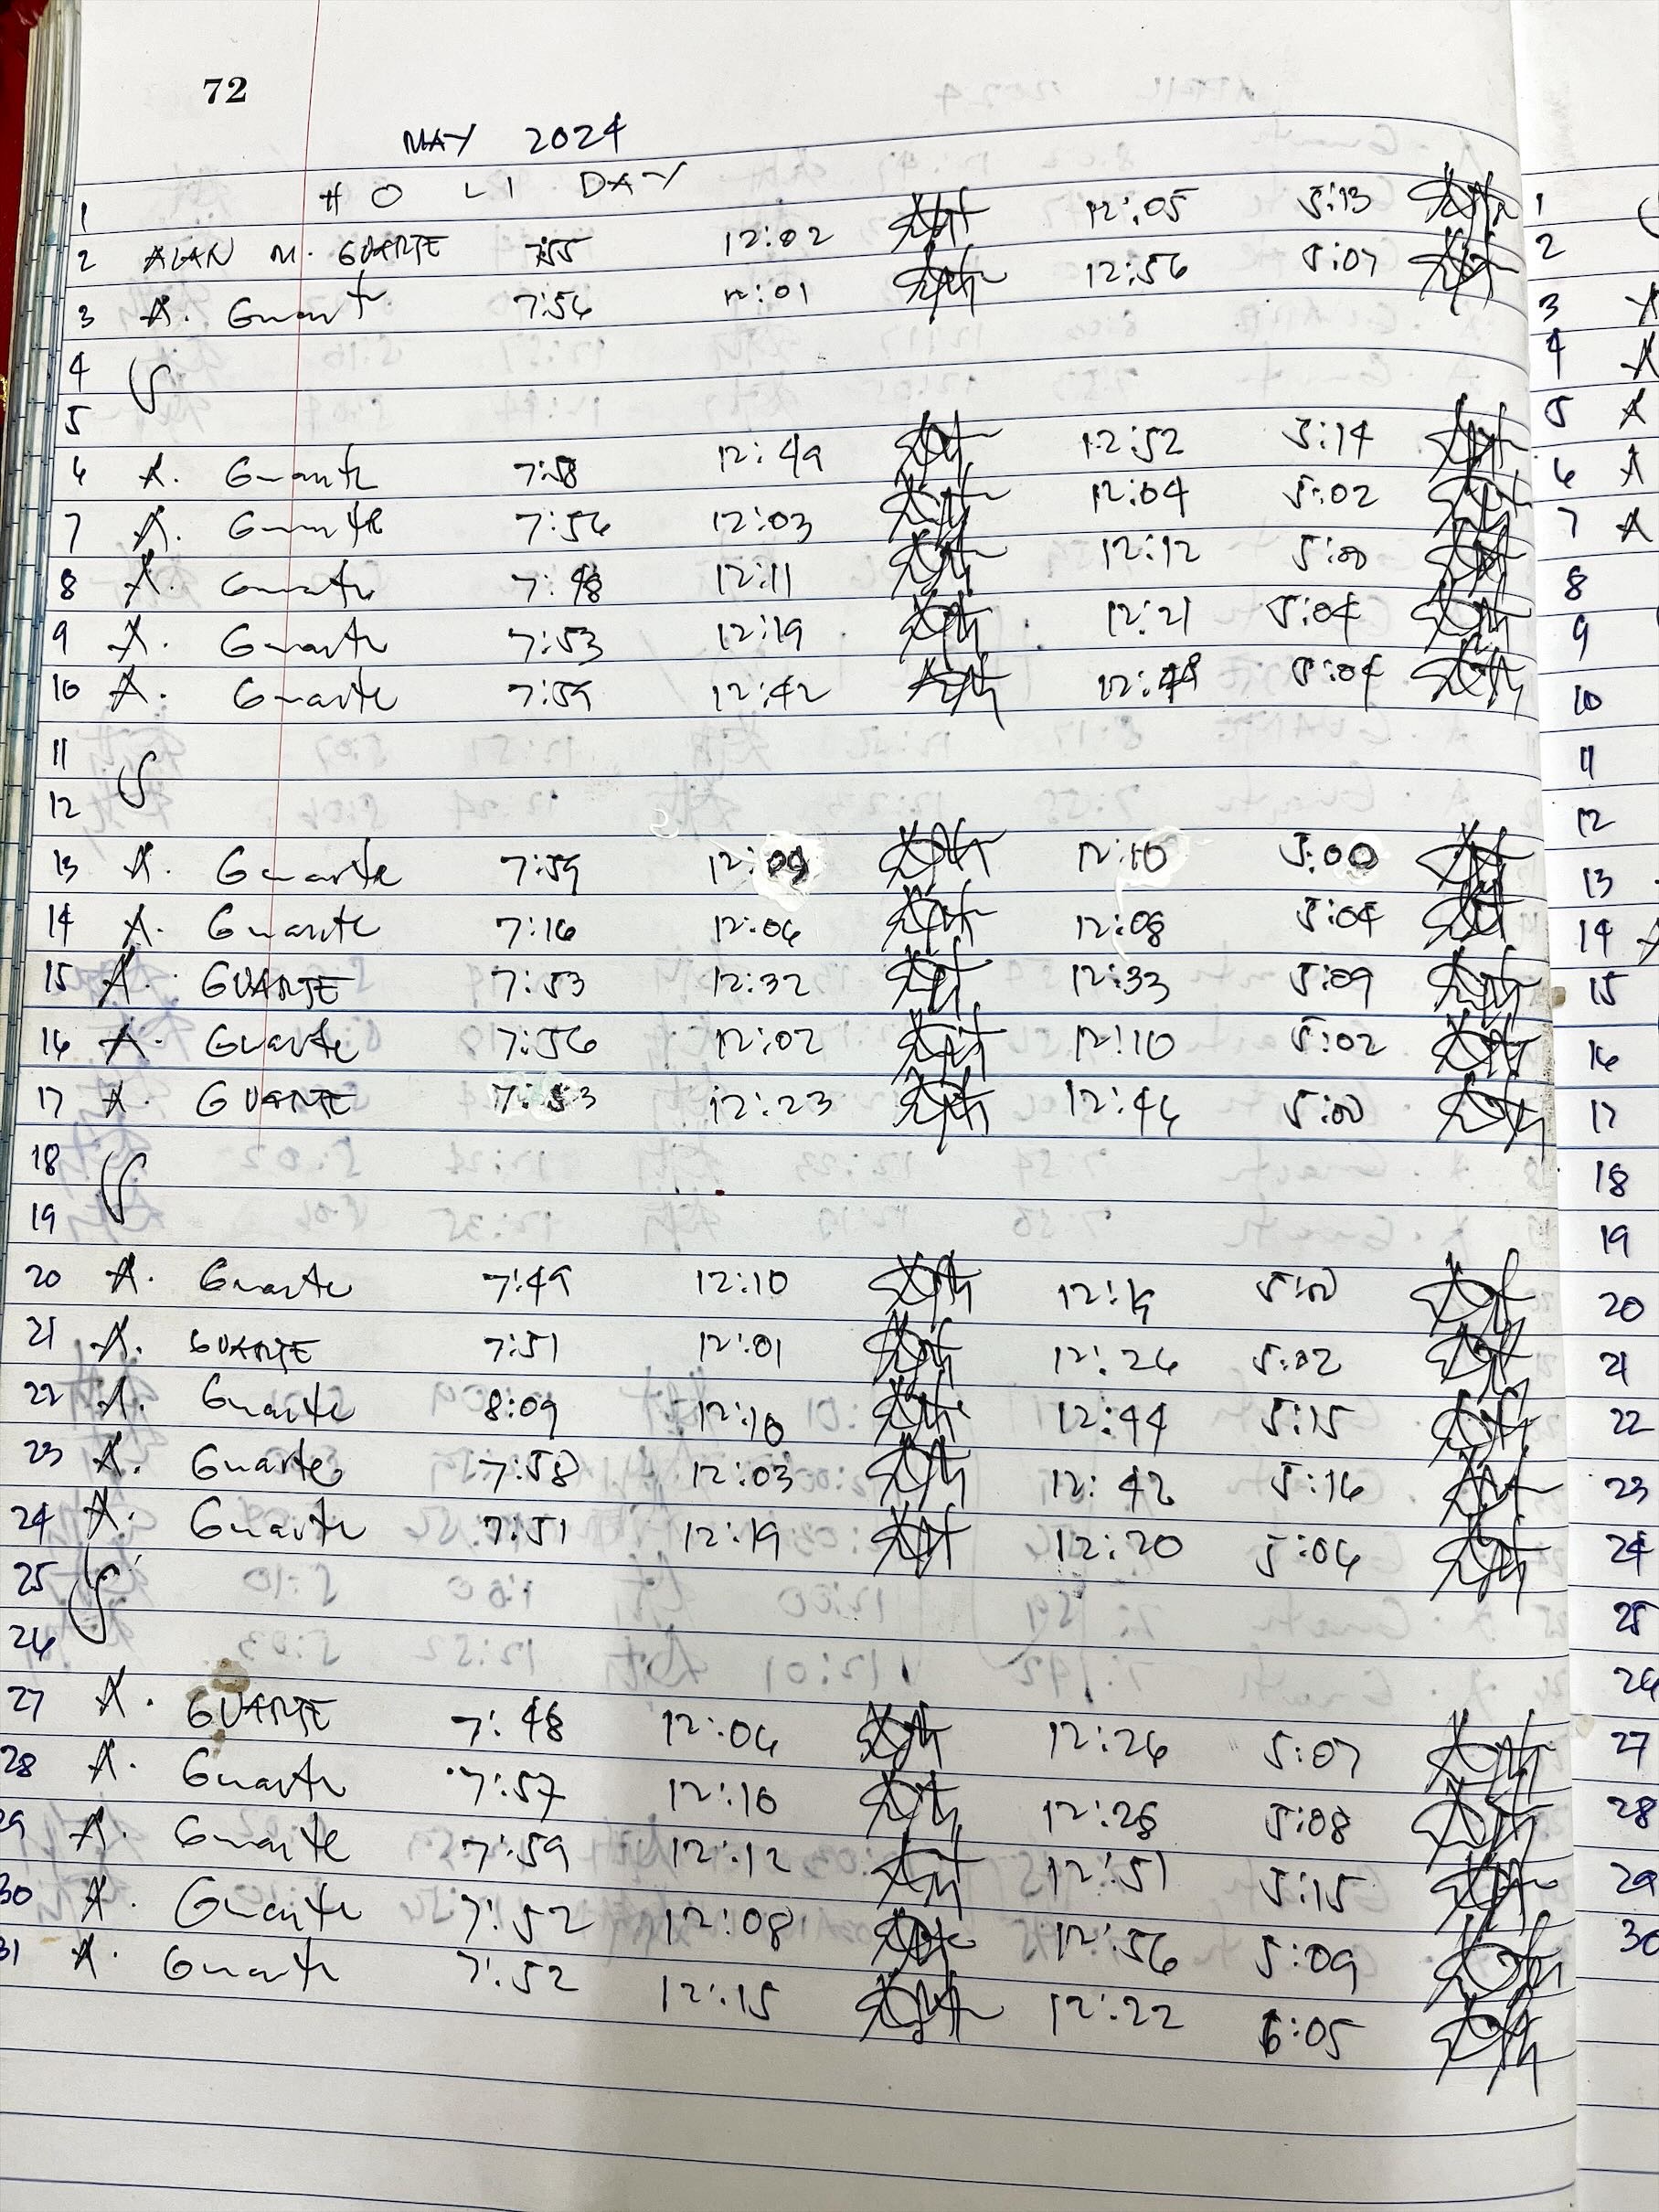 72
MAY 2024
1 HOLIDAY
2 ALAN M. GUARTE 7:55 12:02 12:05 5:13
3 A. Guarte 7:56 12:01 12:56 5:07
4 S
5
6 A. Guarte 7:58 12:49 12:52 5:14
7 A. Guarte 7:56 12:03 12:04 5:02
8 A. Guarte 7:48 12:11 12:12 5:00
9 A. Guarte 7:53 12:19 12:21 5:04
10 A. Guarte 7:59 12:42 5:04
11 S
12
13 A. Guarte 7:59 12:09 12:10 5:00
14 A. Guarte 7:16 12:06 12:08 5:04
15 A. GUARTE 7:53 12:32 12:33 5:09
16 A. Guarte 7:56 12:02 12:10 5:02
17 A. GUARTE 7:53 12:23 12:46 5:00
18 S
19
20 A. Guarte 7:49 12:10 5:00
21 A. GUARTE 7:51 12:01 12:26 5:02
22 A. Guarte 8:09 12:10 12:44 5:15
23 A. Guarte 7:58 12:03 12:42 5:16
24 A. Guarte 7:51 12:19 12:20 5:06
25 S
26
27 A. GUARTE 7:48 12:06 12:26 5:07
28 A. Guarte 7:57 12:10 12:28 5:08
29 A. Guarte 7:59 12:12 12:51 5:15
30 A. Guarte 7:52 12:08 12:56 5:09
31 A. Guarte 7:52 12:15 12:22 6:05
1
2
3 A
4 A
5 A
6 A
7 A
8
9
10
11
12
13
14 A
15
16
17
18
19
20
21
22
23
24
25
26
27
28
29
30